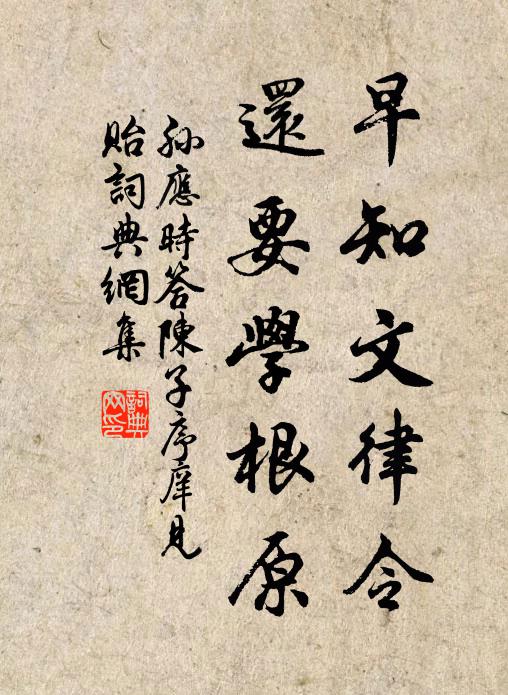 早知文律令
還要學根原
孫應時答陳子序庠見
貽詞典網集
詞典
网印